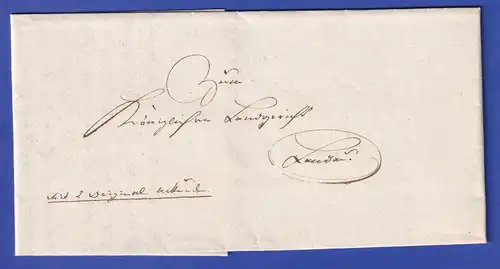 Zum
Königlichen Landgericht
Landau.
Mit 2 Original. Urkunden.